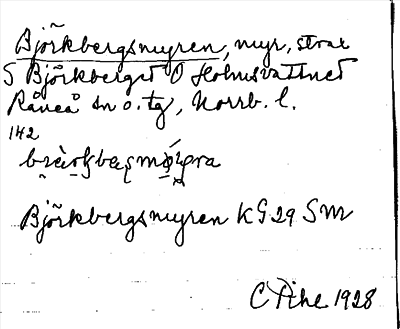 Björkbergsmyren, myr, strax
S Björkberget O Holmsvattnet
Råneå sn o. tg, Norrb. l.
142
Björkbergsmyren KG 29 SM
C Pihe 1928